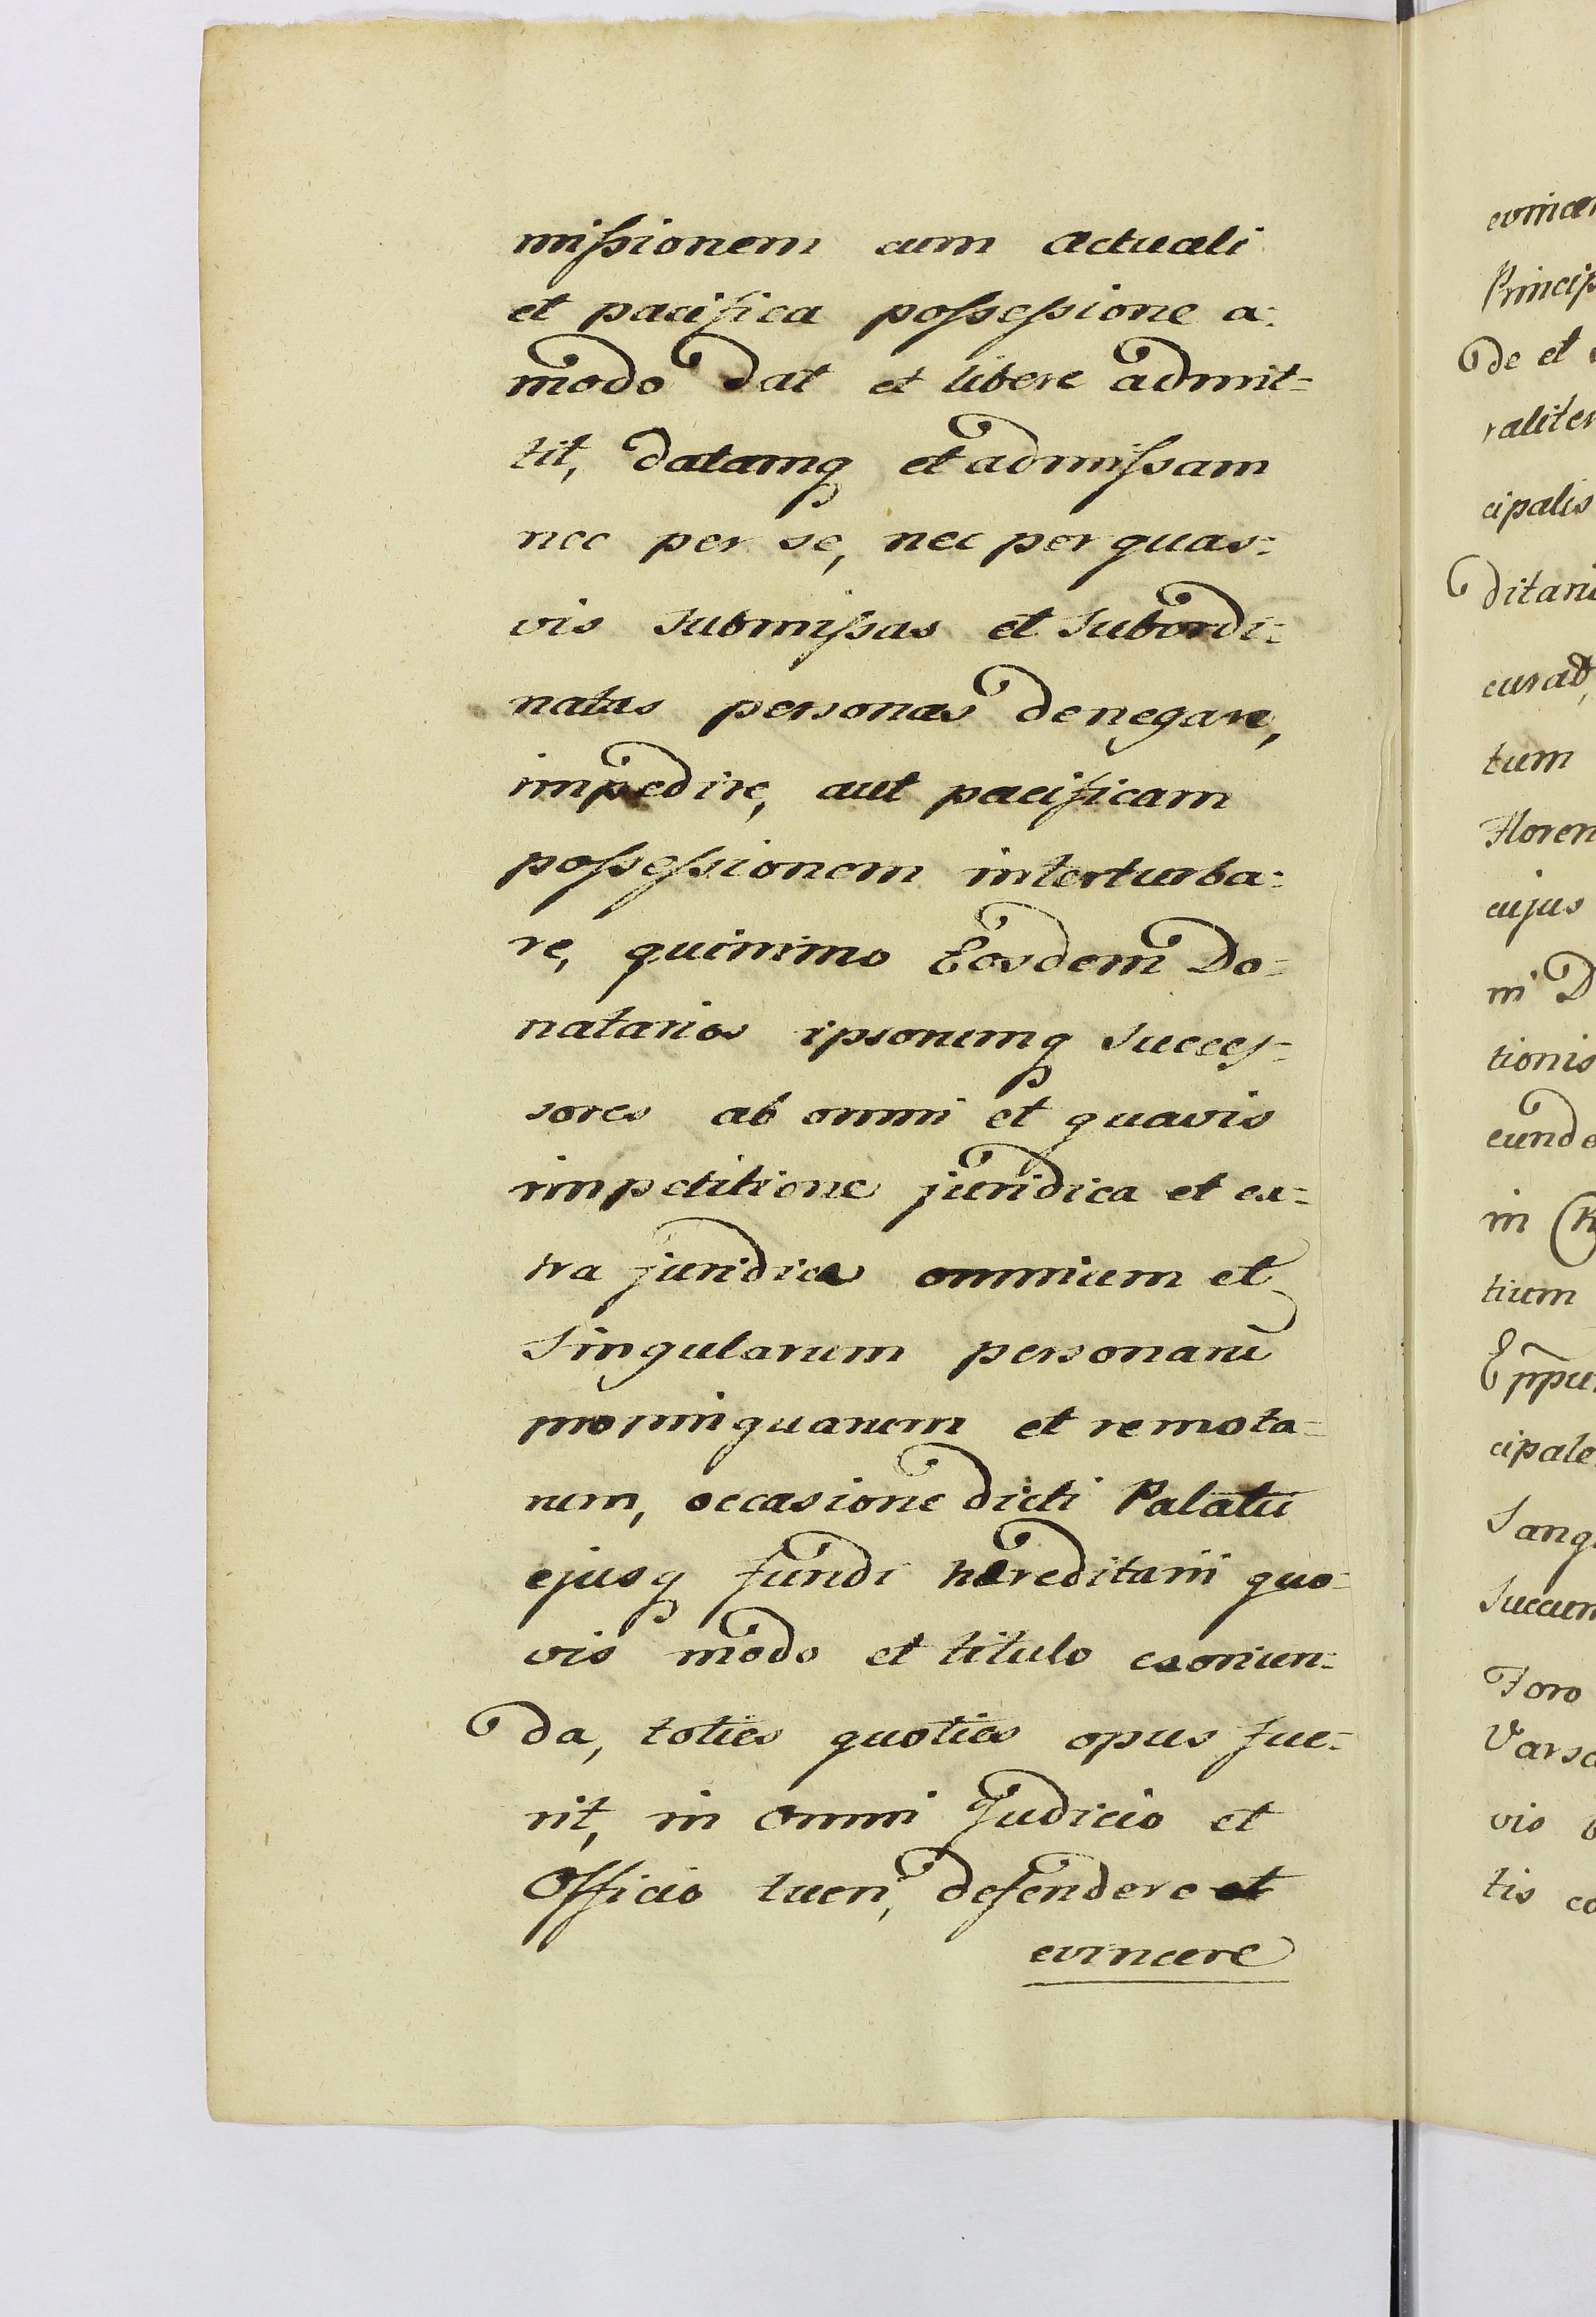 missionem cum actuali
et pacifica possessione a:
modo dat et libere admit=
tit, datamq et admissam
nec per se, nec per quas:
vis submissas et subordi:
natas personas denegare,
impedire, aut pacificam
possessionem interturba:
re, quinimo Eosdem Do=
natarios ipsorumq succes=
sores ab omni et quavis
impetitione juridica et ex=
tra juridica omnium et
singularum personarū
propinquarum et remota=
rum, occasione dicti Palatii
ejusq fundi hæreditarii quo=
vis modo et titulo exoriun:
da, toties quoties opus fue:
rit, in omni Judicio et
Officio tueri, defendere et
evincere
Princip
de et
raliter
cipalis
ditari
curat,
tum
Floren
cujus
ni D
tionis
eunde
in
tium
cipale
Sang
succum
Foro
Varsa
vis
tis co